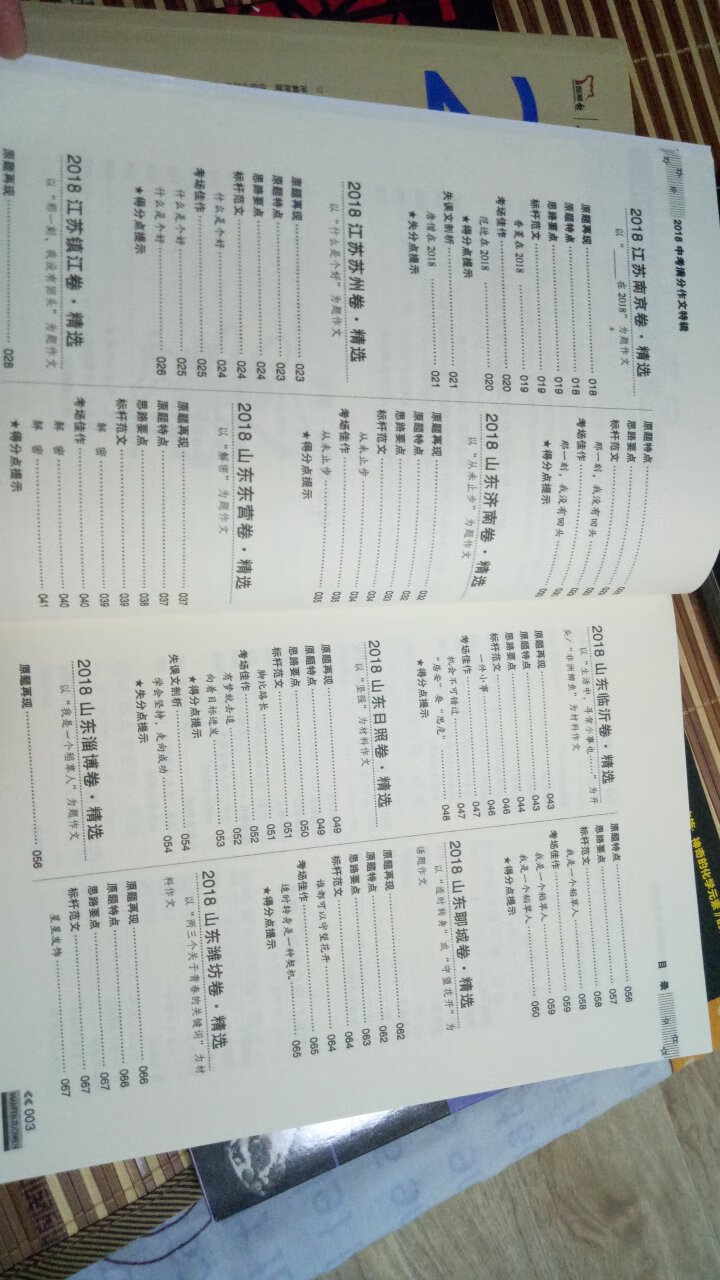 2018 中考满分作文特辑
2018 江苏南京卷·精选
以“______在 2018”为题作文
原题再现 018
原题特点 018
思路要点 019
标杆范文 019
香菱在 2018 019
考场佳作 020
范进在 2018 020
★得分点提示
失误文剖析 021
唐僧在 2018 021
★失分点提示
2018 江苏苏州卷·精选
以“什么是个好”为题作文
原题再现 023
原题特点 023
思路要点 024
标杆范文 024
什么是个好 024
考场佳作 025
什么是个好 025
什么是个好 026
★得分点提示
2018 江苏镇江卷·精选
以“那一刻，我没有回头”为题作文
原题再现 028
原题特点
思路要点
标杆范文
那一刻，我没有回头
考场佳作
那一刻，我没有回头
★得分点提示
2018 山东济南卷·精选
以“从未止步”为题作文
原题再现 032
原题特点 032
思路要点 033
标杆范文 034
从未止步 034
考场佳作 035
从未止步 035
★得分点提示
2018 山东东营卷·精选
以“解密”为题作文
原题再现 037
原题特点 037
思路要点 038
标杆范文 039
解 密 039
考场佳作 040
解 密 040
解 密 041
★得分点提示
目 录
2018 山东临沂卷·精选
以“生活中，寻常小事也……”为开
头/“非洲鲫鱼”为材料作文
原题再现 043
原题特点 043
思路要点 044
标杆范文 046
一件小事 046
考场佳作 047
机会不可错过 047
“居安”要“思危” 048
★得分点提示
2018 山东日照卷·精选
以“坚强”为材料作文
原题再现 049
原题特点 049
思路要点 050
标杆范文 051
脚比路长 051
考场佳作 052
有梦就去追 052
向着目标进发 053
★得分点提示
失误文剖析 054
学会坚持，走向成功 054
★失分点提示
2018 山东淄博卷·精选
以“我是一个稻草人”为题作文
原题再现 056
原题特点 056
思路要点 057
标杆范文 058
我是一个稻草人 058
考场佳作 059
我是一个稻草人 059
我是一个稻草人 060
★得分点提示
2018 山东聊城卷·精选
以“适时转身”或“守望花开”为
话题作文
原题再现 062
原题特点 062
思路要点 063
标杆范文 064
谁都可以守望花开 064
考场佳作 065
适时转身是一种契机 065
★得分点提示
2018 山东潍坊卷·精选
以“两三个关于青春的关键词”为材
料作文
原题再现 066
原题特点 066
思路要点 067
标杆范文 067
星星发饰 067
003